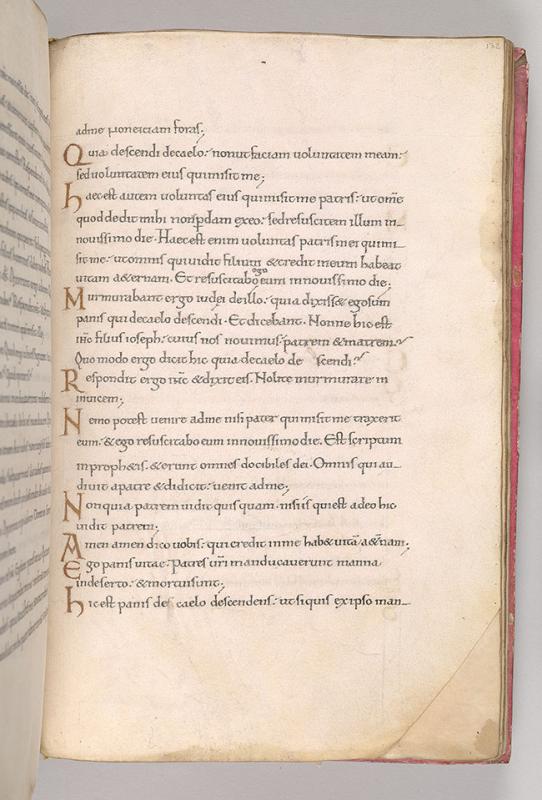 132
adme noneiciam foras;
Quia descendi decaelo: nonut faciam voluntatem meam:
sedvoluntatem eius quimisit me;
haecest autem voluntas eius quimisit me patris: ut om̄e
quod dedit mihi non ꝑdam exeo: sedresuscitem illum in
novissimo die. Haecest enim voluntas patris mei qui mi
sit me: utomnis quividit filium & credit ineum habeat
vitam a&ernam. Et resuscitabo ego eum innovissimo die;
Murmurabant ergo iudei deillo: quia dixiss& egosum
panis qui decaelo descendi. Et dicebant. Nonne hic est
ih̄c filius ioseph: cuius nos novimus patrem & matrem?
Quo modo ergo dicit hic quia decaelo de scendi?
Respondit ergo ih̄c & dixit eis. Nolite murmurare in
invicem;
Nemo potest venire adme nisi pater qui misit me traxerit
eum: & ego resuscitabo eum innovissimo die. Est scriptum
inproph&is: & erunt omnes docibiles dei. Omnis qui au
divit apatre & didicit: venit adme;
Nonquia patrem vidit quis quam. nisi is qui est a deo hic
vidit patrem;
Amen amen dico vobis: qui credit inme hab& vitā a&̄nam;
Ego panis vitae. Patres vr̄i manducaverunt manna
indeserto: & mortui sunt;
hic est panis de caelo descendens: ut si quis ex ipso man